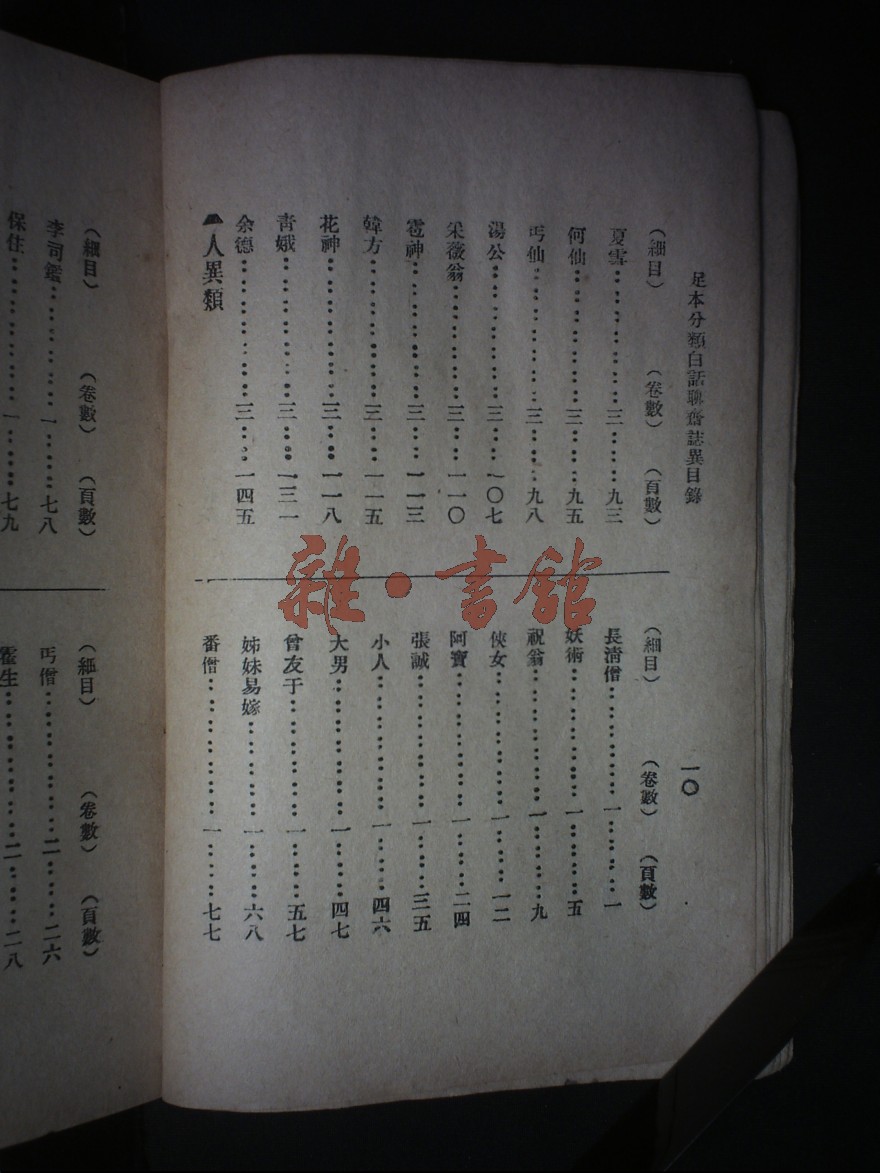 足本分類白話聊齋誌異目錄
一〇
（細目）（卷數）（頁數）
夏雪……………三……九三
何仙……………三……九五
丐仙……………三……九八
湯公……………三……一〇七
采薇翁……………三……一一〇
雹神……………三……一一三
韓方……………三……一一五
花神……………三……一一八
青娥……………三……一三一
余德……………三……一四五
人異類
（細目）（卷數）（頁數）
長清僧……………一……一
妖術……………一……五
祝翁……………一……九
俠女……………一……一二
阿寶……………一……二四
張誠……………一……三五
小人……………一……四六
大男……………一……四七
曾友于……………一……五七
姊妹易嫁……………一……六八
番僧……………一……七七
（細目）（卷數）（頁數）
李司鑑……………一……七八
保住……………一……七九
（細目）（卷數）（頁數）
丐僧……………二……二六
霍生……………二……二八
雜·書館